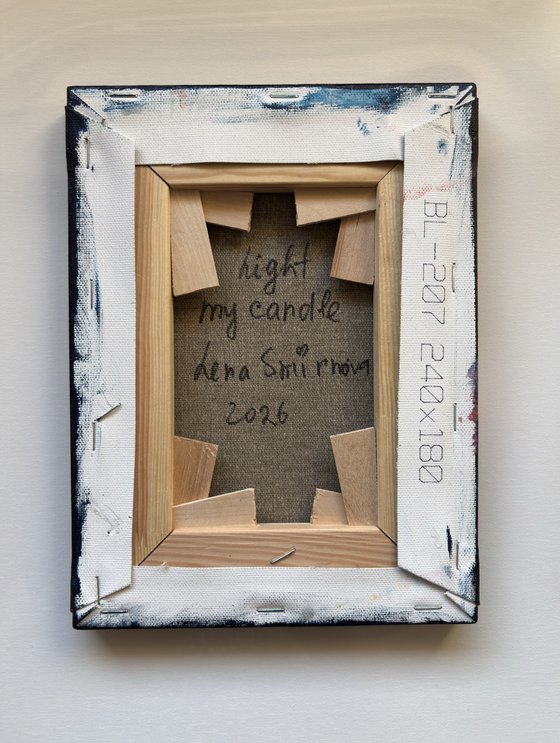 Light
my candle
Lena Smirnova
2026
BL-207 240x180